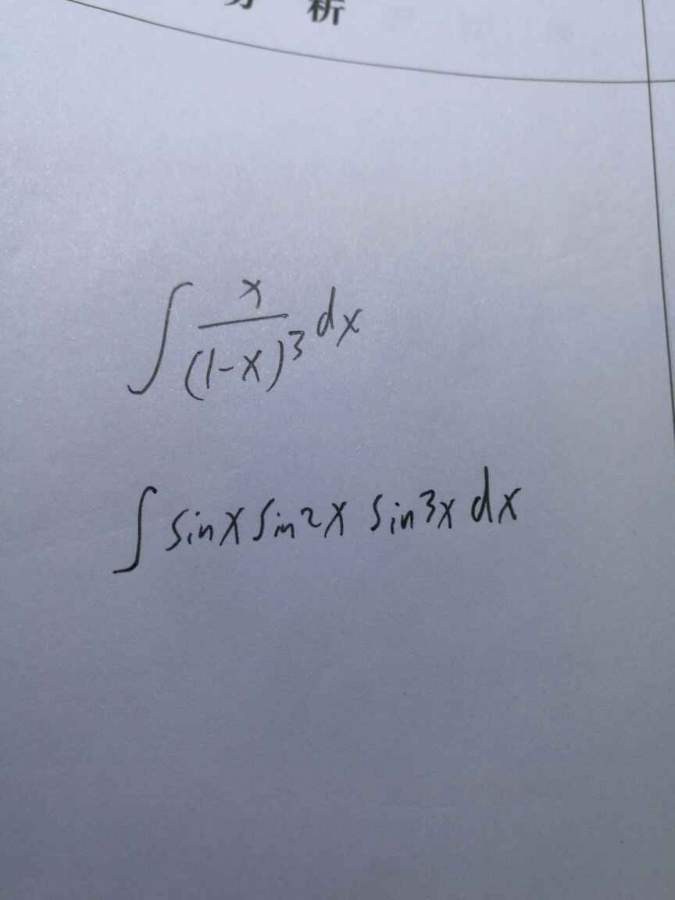 分 析
∫ x/(1-x)³ dx
∫ sinx sin2x sin3x dx